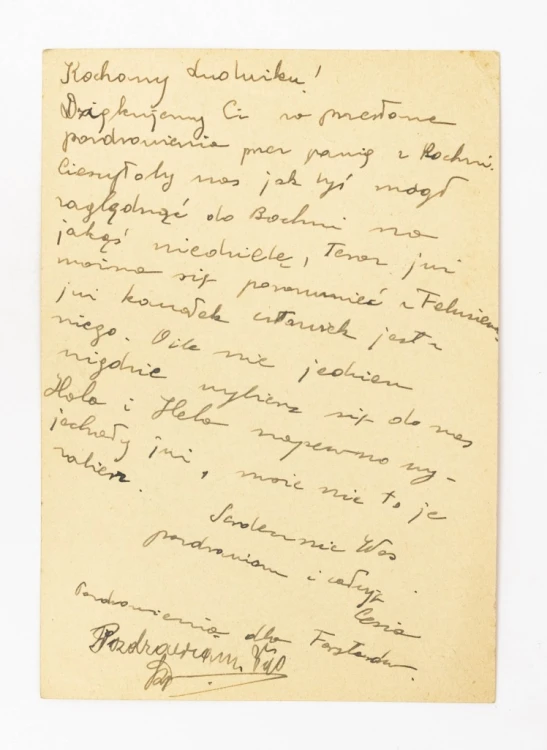 Kochany Ludwiku!
Dziękujemy Ci za przesłane
pozdrowienia przez panią z Bochni.
Cieszyłoby nas jak byś mógł
zaglądnąć do Bochni na
jakąś niedzielę, Teraz już
można się porozumieć z Felusiem
już kawałek człowiek jest z
niego. O ile nie jedziesz
nigdzie wybierz się do nas
Hala i Hela napewno wy-
jechały już, może nie to je
zabierz.
Serdecznie Was
pozdrawiam i całuję
Cesia
Pozdrowienia dla
Pozdrawiam